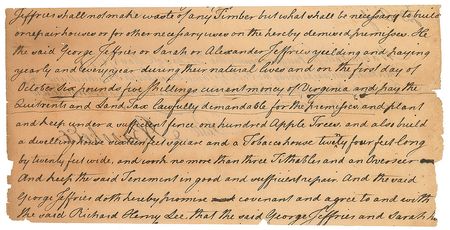 Jeffries shall not make waste of any Timber but what shall be necessary to build
or repair houses or for other necessary uses on the hereby demised premises. He
the said George Jeffries or Sarah or Alexander Jeffries yielding and paying
yearly and every year during their natural lives and on the first day of
October Six pounds five Shillings current money of Virginia and pay the
Quitrents and Land Tax lawfully demandable for the premises and plant
and keep under a sufficient fence one hundred Apple Trees, and also build
a dwelling house sixteen feet square and a Tobacco house twenty four feet long
by twenty feet wide, and work no more than three Tithables and an Overseer
And keep the said Tenement in good and sufficient repair. And the said
George Jeffries doth hereby promise and covenant and agree to and with
the said Richard Henry Lee, that the said George Jeffries and Sarah h